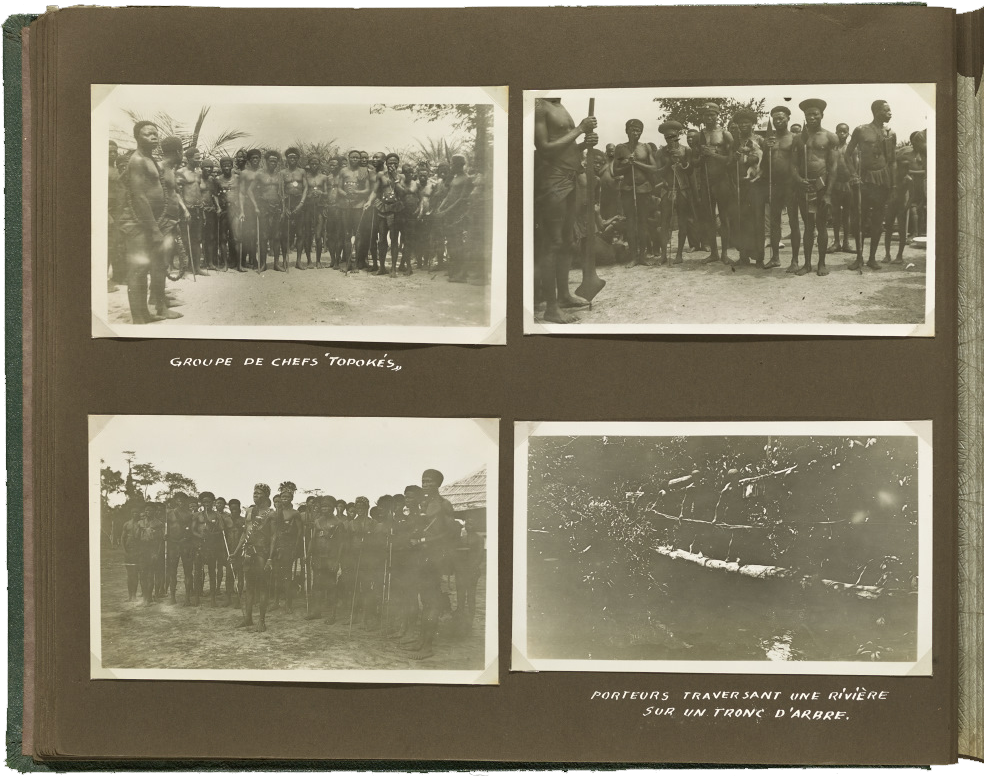 GROUPE DE CHEFS "TOPOKÉS„
PORTEURS TRAVERSANT UNE RIVIÈRE
SUR UN TRONC D'ARBRE.